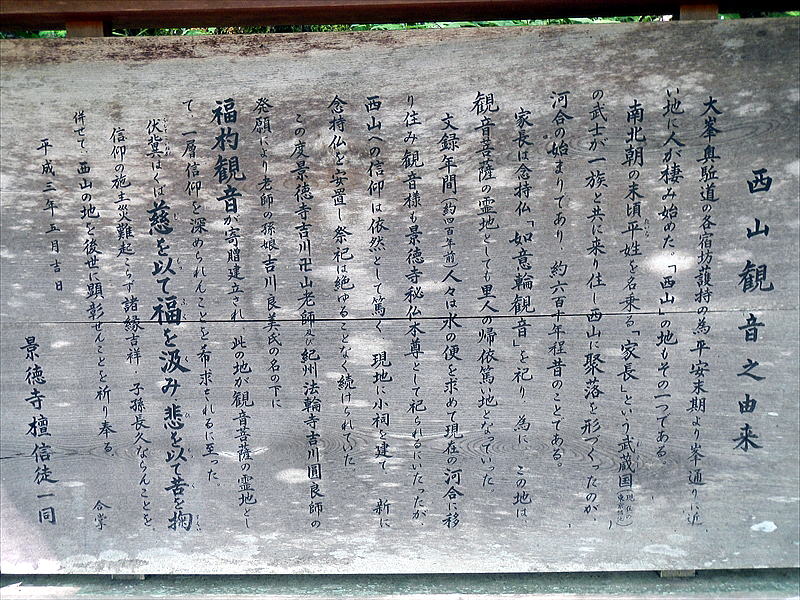 西山観音之由来
大峯奥駈道の各宿坊護持の為平安末期より峯通りに近
い地に人が棲み始めた。「西山」の地もその一つである。
南北朝の末頃平姓を名乗る「家長」という武蔵国
の武士が一族と共に来り住し西山に聚落を形づくったのが、
河合の始まりであり、約六百十年程昔のことである。
家長は念持仏「如意輪観音」を祀り、為に、この地は、
観音菩薩の霊地としても里人の帰依篤い地となっていった。
文録年間(約四百年前)人々は水の便を求めて現在の河合に移
り住み観音様も景徳寺秘仏本尊として祀られるいたったが
西山への信仰は依然として篤く、現地に小祠を建て、新に
念持仏を安置し祭祀は絶ゆることなく続けられていた
この度景徳寺吉川卍山老師及び紀州法輪寺吉川圓良師の
発願により老師の孫娘吉川良美氏の名の下に
福杓観音が寄贈建立され、此の地が観音菩薩の霊地とし
て、一層信仰を深められんことを希求されるに至った。
伏冀くは慈を以て福を汲み悲を以て苦を掬
信仰の施主災難起こらず諸縁吉祥 子孫長久ならんことを
併せて、西山の地を後世に顕彰せんことを祈り奉る。
合掌
平成三年五月吉日
景徳寺檀信徒一同